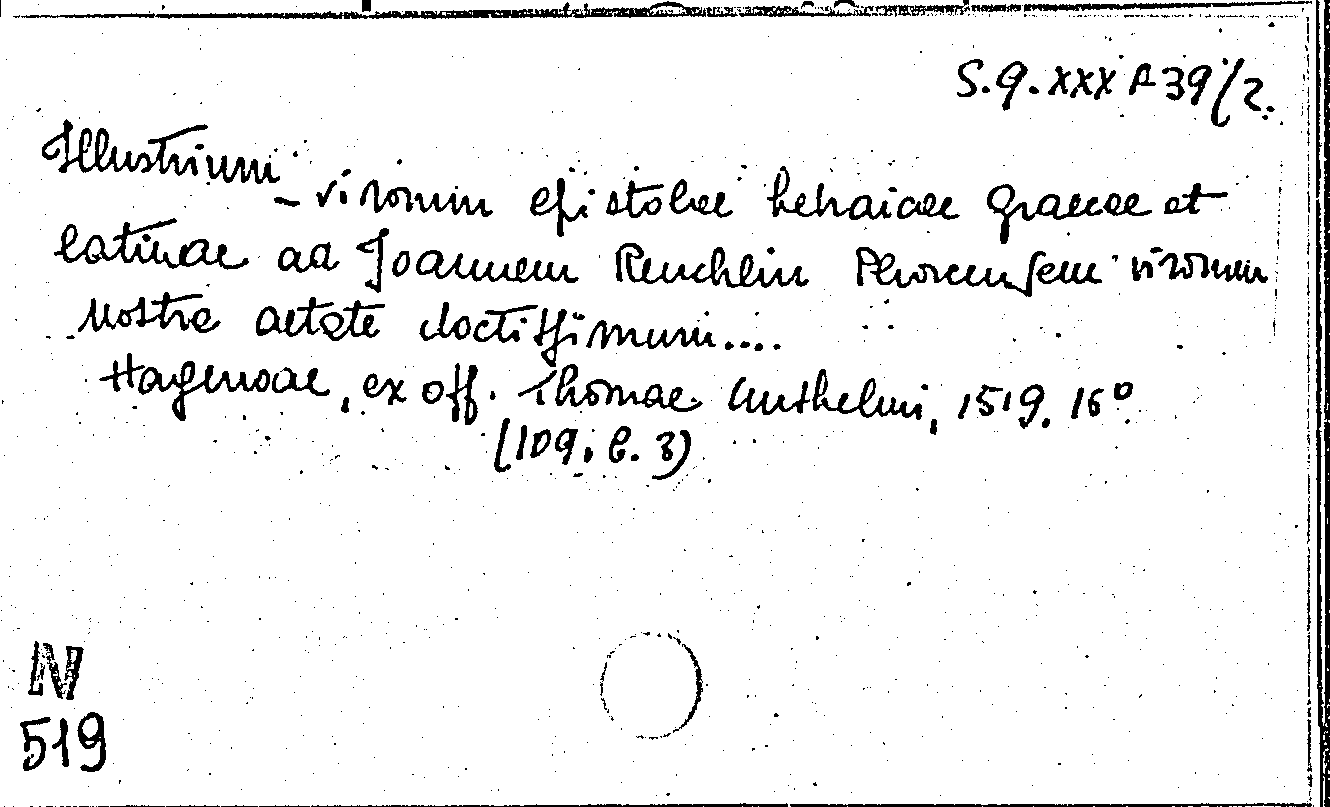 S.Q.XXX A 39/2.
Illustrium virorum epistolae hebraicae graecae et
latinae ad Joannem Reuchlin Phorcensem virorum
nostra aetate doctissimum....
Hagenoae, ex off. Thomae Ansthelmi, 1519. 16°
(109. C. 3)
N
519